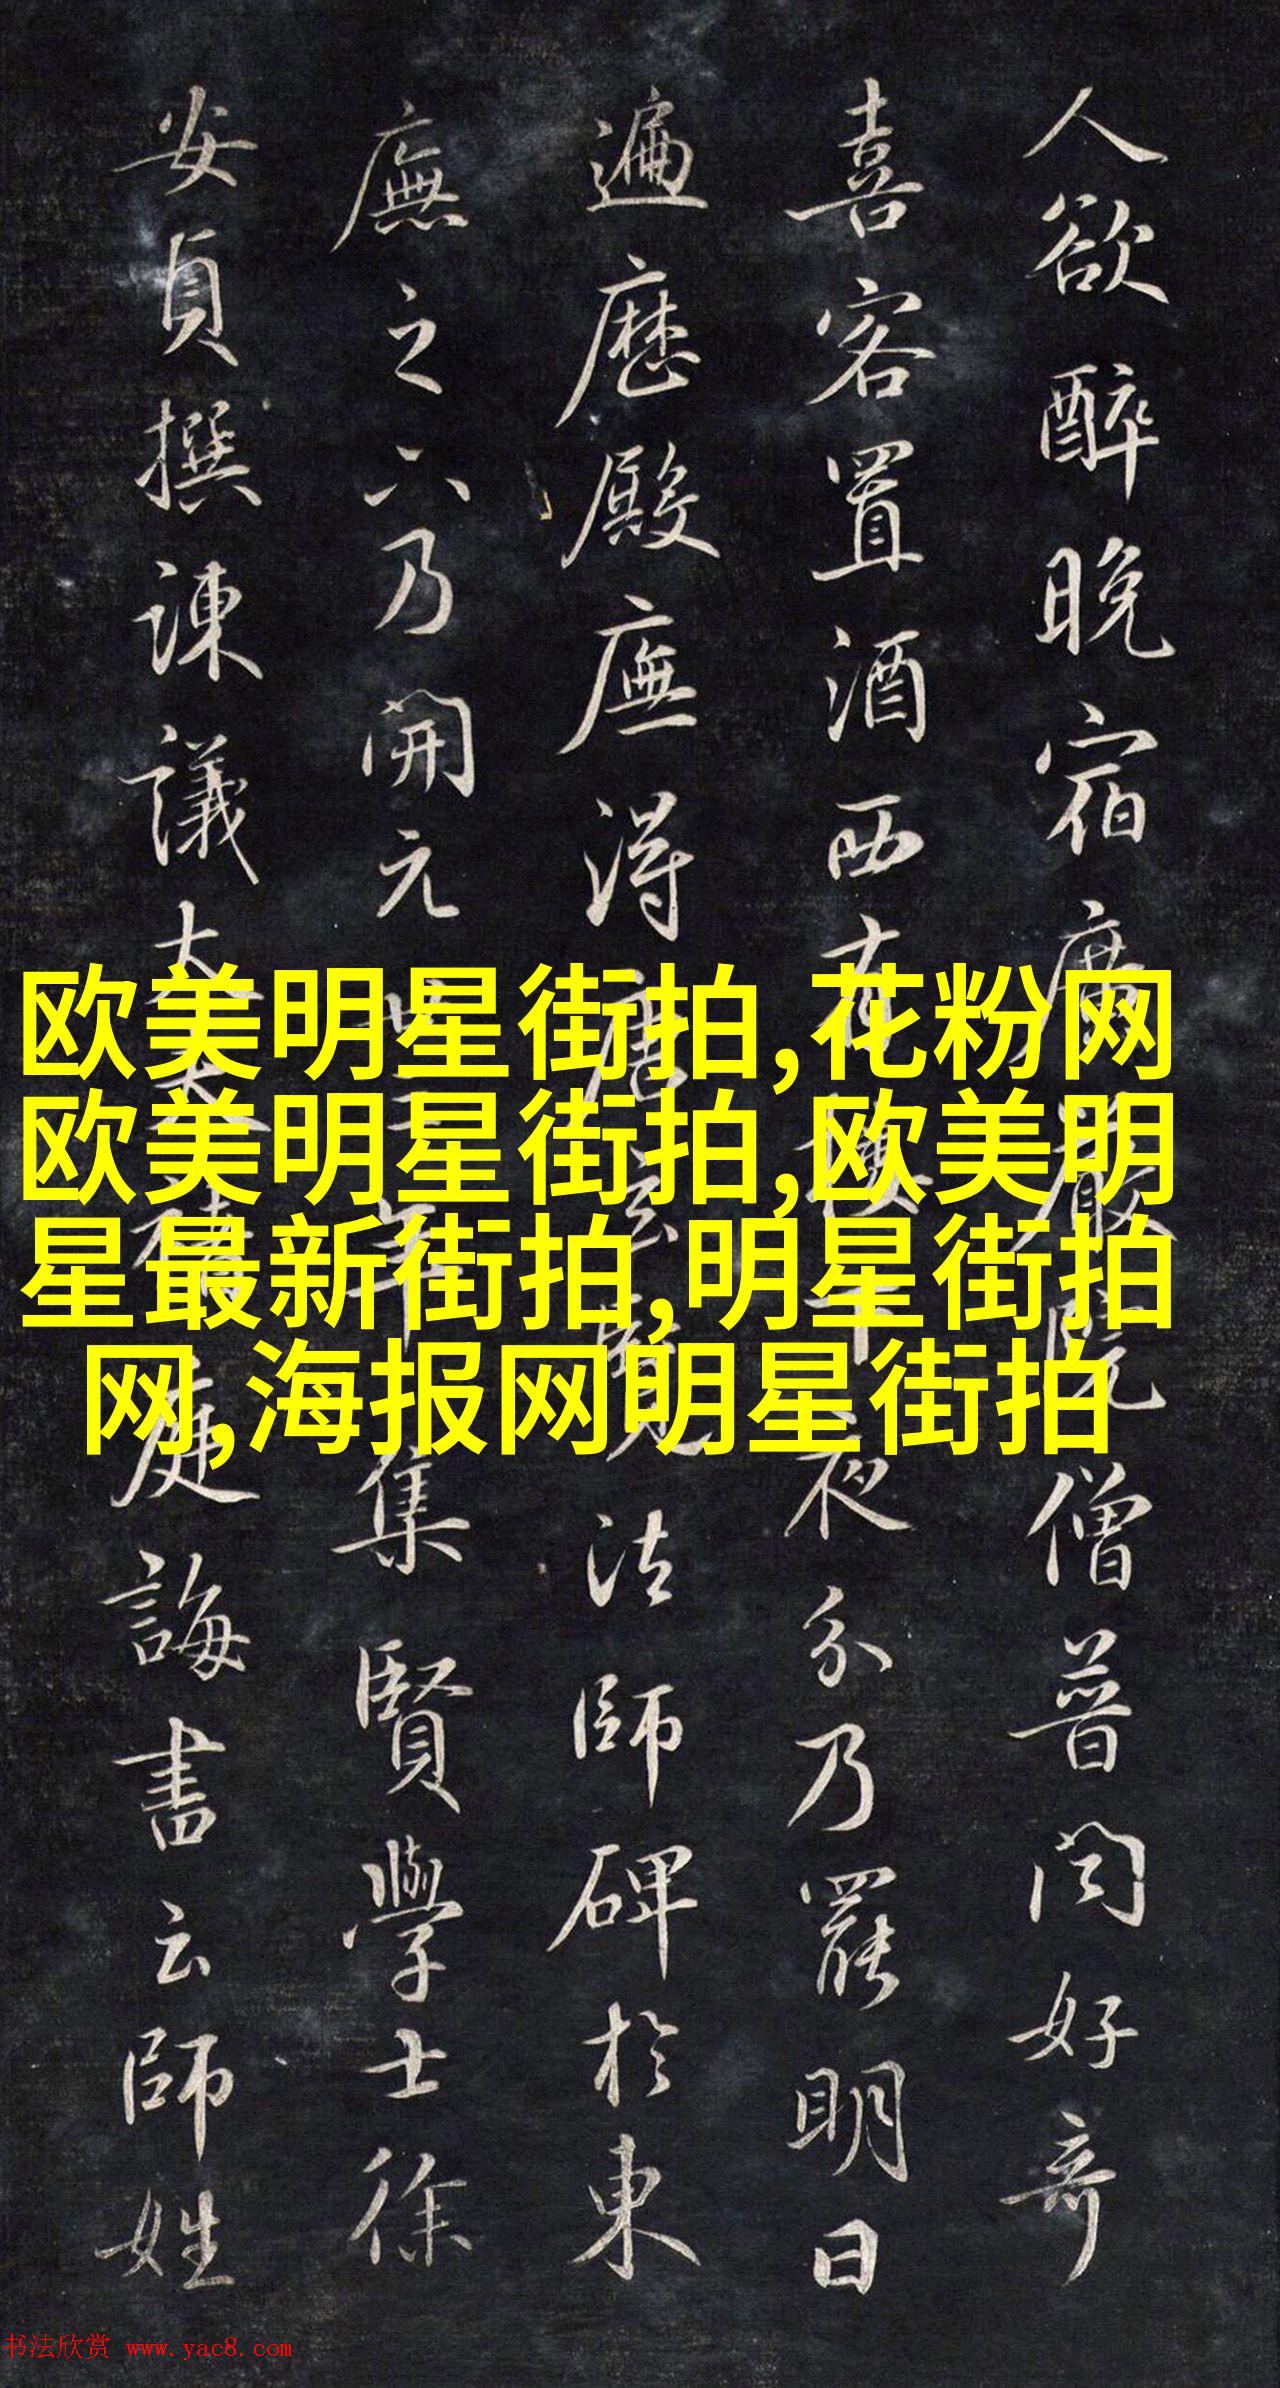 人欲醉晚宿廣嚴院僧普闻好奇
喜客置酒西有樓下夜分乃罷明日
遍歷殿廡得唐玄覽法師碑於東
廡之下乃開元廿三年集賢學士徐
安貞撰諫議大夫褚庭誨書云師姓
欧美明星街拍,花粉网
欧美明星街拍,欧美明
星最新街拍,明星街拍
网,海报网明星街拍
书法欣赏 www.yac8.com